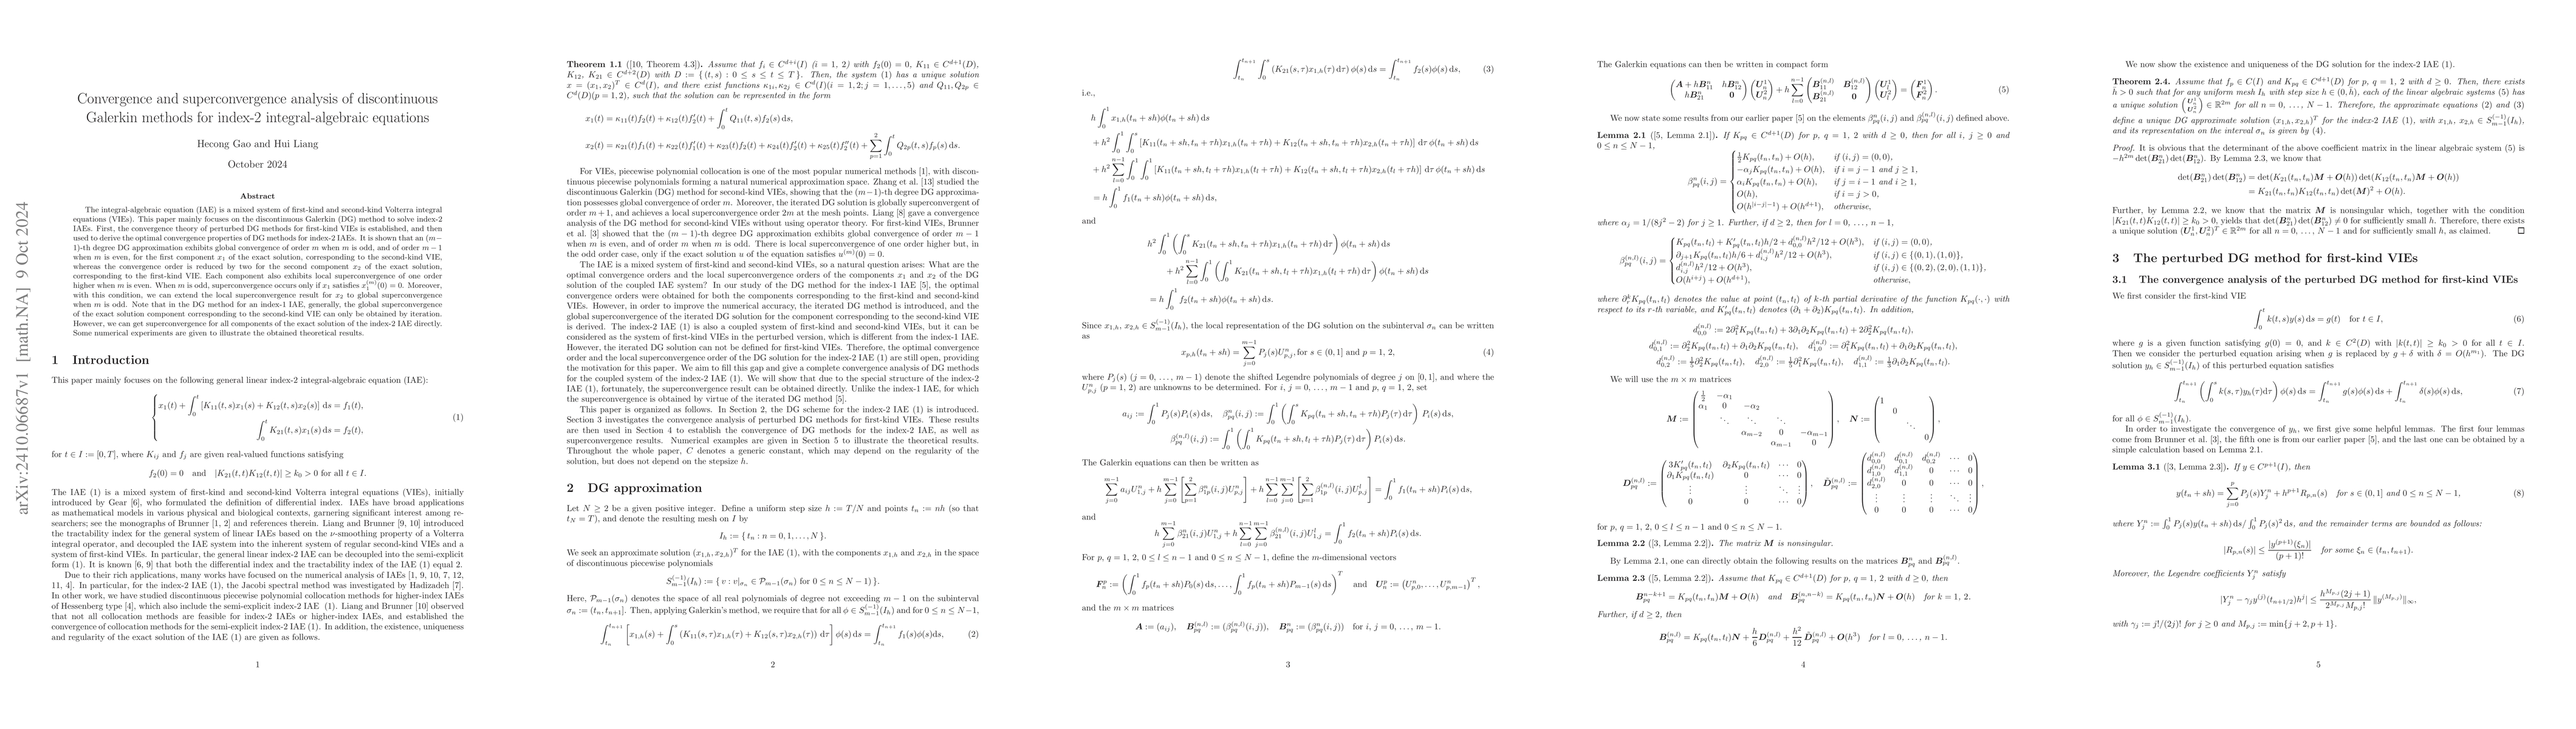 arXiv:2410.06687v1 [math.NA] 9 Oct 2024
Convergence and superconvergence analysis of discontinuous
Galerkin methods for index-2 integral-algebraic equations
Hecong Gao and Hui Liang
October 2024
Abstract
The integral-algebraic equation (IAE) is a mixed system of first-kind and second-kind Volterra integral
equations (VIEs). This paper mainly focuses on the discontinuous Galerkin (DG) method to solve index-2
IAEs. First, the convergence theory of perturbed DG methods for first-kind VIEs is established, and then
used to derive the optimal convergence properties of DG methods for index-2 IAEs. It is shown that an (m−
1)-th degree DG approximation exhibits global convergence of order m when m is odd, and of order m − 1
when m is even, for the first component x₁ of the exact solution, corresponding to the second-kind VIE,
whereas the convergence order is reduced by two for the second component x₂ of the exact solution,
corresponding to the first-kind VIE. Each component also exhibits local superconvergence of one order
higher when m is even. When m is odd, superconvergence occurs only if x₁ satisfies x₁^{(m)}(0) = 0. Moreover,
with this condition, we can extend the local superconvergence result for x₂ to global superconvergence
when m is odd. Note that in the DG method for an index-1 IAE, generally, the global superconvergence
of the exact solution component corresponding to the second-kind VIE can only be obtained by iteration.
However, we can get superconvergence for all components of the exact solution of the index-2 IAE directly.
Some numerical experiments are given to illustrate the obtained theoretical results.
1 Introduction
This paper mainly focuses on the following general linear index-2 integral-algebraic equation (IAE):
{ x₁(t) + ∫₀ᵗ [K₁₁(t, s)x₁(s) + K₁₂(t, s)x₂(s)] ds = f₁(t),
∫₀ᵗ K₂₁(t, s)x₁(s) ds = f₂(t), (1)
for t ∈ I := [0, T], where K_{ij} and f_j are given real-valued functions satisfying
f₂(0) = 0 and |K₂₁(t, t)K₁₂(t, t)| ≥ k₀ > 0 for all t ∈ I.
The IAE (1) is a mixed system of first-kind and second-kind Volterra integral equations (VIEs), initially
introduced by Gear [6], who formulated the definition of differential index. IAEs have broad applications
as mathematical models in various physical and biological contexts, garnering significant interest among re-
searchers; see the monographs of Brunner [1, 2] and references therein. Liang and Brunner [9, 10] introduced
the tractability index for the general system of linear IAEs based on the ν-smoothing property of a Volterra
integral operator, and decoupled the IAE system into the inherent system of regular second-kind VIEs and a
system of first-kind VIEs. In particular, the general linear index-2 IAE can be decoupled into the semi-explicit
form (1). It is known [6, 9] that both the differential index and the tractability index of the IAE (1) equal 2.
Due to their rich applications, many works have focused on the numerical analysis of IAEs [1, 9, 10, 7, 12,
11, 4]. In particular, for the index-2 IAE (1), the Jacobi spectral method was investigated by Hadizadeh [7].
In other work, we have studied discontinuous piecewise polynomial collocation methods for higher-index IAEs
of Hessenberg type [4], which also include the semi-explicit index-2 IAE (1). Liang and Brunner [10] observed
that not all collocation methods are feasible for index-2 IAEs or higher-index IAEs, and established the
convergence of collocation methods for the semi-explicit index-2 IAE (1). In addition, the existence, uniqueness
and regularity of the exact solution of the IAE (1) are given as follows.
1
Theorem 1.1 ([10, Theorem 4.3]). Assume that f_i ∈ C^{d+i}(I) (i = 1, 2) with f₂(0) = 0, K₁₁ ∈ C^{d+1}(D),
K₁₂, K₂₁ ∈ C^{d+2}(D) with D := { (t, s) : 0 ≤ s ≤ t ≤ T }. Then, the system (1) has a unique solution
x = (x₁, x₂)^T ∈ C^d(I), and there exist functions κ_{1i}, κ_{2j} ∈ C^d(I)(i = 1, 2; j = 1, . . . , 5) and Q₁₁, Q_{2p} ∈
C^d(D)(p = 1, 2), such that the solution can be represented in the form
x₁(t) = κ₁₁(t)f₂(t) + κ₁₂(t)f₂′(t) + ∫₀ᵗ Q₁₁(t, s)f₂(s) ds,
x₂(t) = κ₂₁(t)f₁(t) + κ₂₂(t)f₁′(t) + κ₂₃(t)f₂(t) + κ₂₄(t)f₂′(t) + κ₂₅(t)f₂″(t) + ∑_{p=1}^{2} ∫₀ᵗ Q_{2p}(t, s)f_p(s) ds.
For VIEs, piecewise polynomial collocation is one of the most popular numerical methods [1], with discon-
tinuous piecewise polynomials forming a natural numerical approximation space. Zhang et al. [13] studied the
discontinuous Galerkin (DG) method for second-kind VIEs, showing that the (m−1)-th degree DG approxima-
tion possesses global convergence of order m. Moreover, the iterated DG method is globally superconvergent of
order m+1, and achieves a local superconvergence order 2m at the mesh points. Liang [8] gave a convergence
analysis of the DG method for second-kind VIEs without using operator theory. For first-kind VIEs, Brunner
et al. [3] showed that the (m − 1)-th degree DG approximation exhibits global convergence of order m − 1
when m is even, and of order m when m is odd. There is local superconvergence of one order higher but, in
the odd order case, only if the exact solution u of the equation satisfies u^{(m)}(0) = 0.
The IAE is a mixed system of first-kind and second-kind VIEs, so a natural question arises: What are the
optimal convergence orders and the local superconvergence orders of the components x₁ and x₂ of the DG
solution of the coupled IAE system? In our study of the DG method for the index-1 IAE [5], the optimal
convergence orders were obtained for both the components corresponding to the first-kind and second-kind
VIEs. However, in order to improve the numerical accuracy, the iterated DG method is introduced, and the
global superconvergence of the iterated DG solution for the component corresponding to the second-kind VIE
is derived. The index-2 IAE (1) is also a coupled system of first-kind and second-kind VIEs, but it can be
considered as the system of first-kind VIEs in the perturbed version, which is different from the index-1 IAE.
However, the iterated DG solution can not be defined for first-kind VIEs. Therefore, the optimal convergence
order and the local superconvergence order of the DG solution for the index-2 IAE (1) are still open, providing
the motivation for this paper. We aim to fill this gap and give a complete convergence analysis of DG methods
for the coupled system of the index-2 IAE (1). We will show that due to the special structure of the index-2
IAE (1), fortunately, the superconvergence result can be obtained directly. Unlike the index-1 IAE, for which
the superconvergence is obtained by virtue of the iterated DG method [5].
This paper is organized as follows. In Section 2, the DG scheme for the index-2 IAE (1) is introduced.
Section 3 investigates the convergence analysis of perturbed DG methods for first-kind VIEs. These results
are then used in Section 4 to establish the convergence of DG methods for the index-2 IAE, as well as
superconvergence results. Numerical examples are given in Section 5 to illustrate the theoretical results.
Throughout the whole paper, C denotes a generic constant, which may depend on the regularity of the
solution, but does not depend on the stepsize h.
2 DG approximation
Let N ≥ 2 be a given positive integer. Define a uniform step size h := T/N and points t_n := nh (so that
t_N = T), and denote the resulting mesh on I by
I_h := { t_n : n = 0, 1, . . . , N }.
We seek an approximate solution (x_{1,h}, x_{2,h})^T for the IAE (1), with the components x_{1,h} and x_{2,h} in the space
of discontinuous piecewise polynomials
S_{m−1}^{(−1)}(I_h) := { v : v|_{σ_n} ∈ P_{m−1}(σ_n) for 0 ≤ n ≤ N − 1) }.
Here, P_{m−1}(σ_n) denotes the space of all real polynomials of degree not exceeding m − 1 on the subinterval
σ_n := (t_n, t_{n+1}]. Then, applying Galerkin's method, we require that for all φ ∈ S_{m−1}^{(−1)}(I_h) and for 0 ≤ n ≤ N−1,
∫_{t_n}^{t_{n+1}} [ x_{1,h}(s) + ∫₀ˢ (K₁₁(s, τ)x_{1,h}(τ) + K₁₂(s, τ)x_{2,h}(τ)) dτ ] φ(s) ds = ∫_{t_n}^{t_{n+1}} f₁(s)φ(s)ds, (2)
2
∫_{t_n}^{t_{n+1}} ∫₀ˢ (K₂₁(s, τ)x_{1,h}(τ) dτ) φ(s) ds = ∫_{t_n}^{t_{n+1}} f₂(s)φ(s) ds, (3)
i.e.,
h ∫₀¹ x_{1,h}(t_n + sh)φ(t_n + sh) ds
+ h² ∫₀¹ ∫₀ˢ [K₁₁(t_n + sh, t_n + τh)x_{1,h}(t_n + τh) + K₁₂(t_n + sh, t_n + τh)x_{2,h}(t_n + τh)] dτ φ(t_n + sh) ds
+ h² ∑_{l=0}^{n−1} ∫₀¹ ∫₀¹ [K₁₁(t_n + sh, t_l + τh)x_{1,h}(t_l + τh) + K₁₂(t_n + sh, t_l + τh)x_{2,h}(t_l + τh)] dτ φ(t_n + sh) ds
= h ∫₀¹ f₁(t_n + sh)φ(t_n + sh) ds,
and
h² ∫₀¹ ( ∫₀ˢ K₂₁(t_n + sh, t_n + τh)x_{1,h}(t_n + τh) dτ ) φ(t_n + sh) ds
+ h² ∑_{l=0}^{n−1} ∫₀¹ ( ∫₀¹ K₂₁(t_n + sh, t_l + τh)x_{1,h}(t_l + τh) dτ ) φ(t_n + sh) ds
= h ∫₀¹ f₂(t_n + sh)φ(t_n + sh) ds.
Since x_{1,h}, x_{2,h} ∈ S_{m−1}^{(−1)}(I_h), the local representation of the DG solution on the subinterval σ_n can be written
as
x_{p,h}(t_n + sh) = ∑_{j=0}^{m−1} P_j(s)U_{p,j}^n, for s ∈ (0, 1] and p = 1, 2, (4)
where P_j(s) (j = 0, . . . , m − 1) denote the shifted Legendre polynomials of degree j on [0, 1], and where the
U_{p,j}^n (p = 1, 2) are unknowns to be determined. For i, j = 0, . . . , m − 1 and p, q = 1, 2, set
a_{ij} := ∫₀¹ P_j(s)P_i(s) ds, β_{pq}^n(i, j) := ∫₀¹ ( ∫₀ˢ K_{pq}(t_n + sh, t_n + τh)P_j(τ) dτ ) P_i(s) ds,
β_{pq}^{(n,l)}(i, j) := ∫₀¹ ( ∫₀¹ K_{pq}(t_n + sh, t_l + τh)P_j(τ) dτ ) P_i(s) ds.
The Galerkin equations can then be written as
∑_{j=0}^{m−1} a_{ij}U_{1,j}^n + h ∑_{j=0}^{m−1} [ ∑_{p=1}^{2} β_{1p}^n(i, j)U_{p,j}^n ] + h ∑_{l=0}^{n−1} ∑_{j=0}^{m−1} [ ∑_{p=1}^{2} β_{1p}^{(n,l)}(i, j)U_{p,j}^l ] = ∫₀¹ f₁(t_n + sh)P_i(s) ds,
and
h ∑_{j=0}^{m−1} β_{21}^n(i, j)U_{1,j}^n + h ∑_{l=0}^{n−1} ∑_{j=0}^{m−1} β_{21}^{(n,l)}(i, j)U_{1,j}^l = ∫₀¹ f₂(t_n + sh)P_i(s) ds.
For p, q = 1, 2, 0 ≤ l ≤ n − 1 and 0 ≤ n ≤ N − 1, define the m-dimensional vectors
F_n^p := ( ∫₀¹ f_p(t_n + sh)P₀(s) ds, . . . , ∫₀¹ f_p(t_n + sh)P_{m−1}(s) ds )^T and U_n^p := (U_{p,0}^n, . . . , U_{p,m−1}^n)^T,
and the m × m matrices
A := (a_{ij}), B_{pq}^{(n,l)} := (β_{pq}^{(n,l)}(i, j)), B_{pq}^n := (β_{pq}^n(i, j)) for i, j = 0, . . . , m − 1.
3
The Galerkin equations can then be written in compact form
( A + hB₁₁ⁿ hB₁₂ⁿ ; hB₂₁ⁿ 0 ) ( U_n^1 ; U_n^2 ) + h ∑_{l=0}^{n−1} ( B_{11}^{(n,l)} B_{12}^{(n,l)} ; B_{21}^{(n,l)} 0 ) ( U_l^1 ; U_l^2 ) = ( F_n^1 ; F_n^2 ). (5)
We now state some results from our earlier paper [5] on the elements β_{pq}^n(i, j) and β_{pq}^{(n,l)}(i, j) defined above.
Lemma 2.1 ([5, Lemma 2.1]). If K_{pq} ∈ C^{d+1}(D) for p, q = 1, 2 with d ≥ 0, then for all i, j ≥ 0 and
0 ≤ n ≤ N − 1,
β_{pq}^n(i, j) = { ½K_{pq}(t_n, t_n) + O(h), if (i, j) = (0, 0),
−α_j K_{pq}(t_n, t_n) + O(h), if i = j − 1 and j ≥ 1,
α_i K_{pq}(t_n, t_n) + O(h), if j = i − 1 and i ≥ 1,
O(h), if i = j > 0,
O(h^{|i−j|−1}) + O(h^{d+1}), otherwise,
where α_j = 1/(8j² − 2) for j ≥ 1. Further, if d ≥ 2, then for l = 0, . . . , n − 1,
β_{pq}^{(n,l)}(i, j) = { K_{pq}(t_n, t_l) + K′_{pq}(t_n, t_l)h/2 + d_{0,0}^{(n,l)}h²/12 + O(h³), if (i, j) = (0, 0),
∂_{j+1}K_{pq}(t_n, t_l)h/6 + d_{i,j}^{(n,l)}h²/12 + O(h³), if (i, j) ∈ {(0, 1), (1, 0)},
d_{i,j}^{(n,l)}h²/12 + O(h³), if (i, j) ∈ {(0, 2), (2, 0), (1, 1)},
O(h^{i+j}) + O(h^{d+1}), otherwise,
where ∂_r^k K_{pq}(t_n, t_l) denotes the value at point (t_n, t_l) of k-th partial derivative of the function K_{pq}(·, ·) with
respect to its r-th variable, and K′_{pq}(t_n, t_l) denotes (∂₁ + ∂₂)K_{pq}(t_n, t_l). In addition,
d_{0,0}^{(n,l)} := 2∂₁²K_{pq}(t_n, t_l) + 3∂₁∂₂K_{pq}(t_n, t_l) + 2∂₂²K_{pq}(t_n, t_l),
d_{0,1}^{(n,l)} := ∂₂²K_{pq}(t_n, t_l) + ∂₁∂₂K_{pq}(t_n, t_l), d_{1,0}^{(n,l)} := ∂₁²K_{pq}(t_n, t_l) + ∂₁∂₂K_{pq}(t_n, t_l),
d_{0,2}^{(n,l)} := ⅕∂₂²K_{pq}(t_n, t_l), d_{2,0}^{(n,l)} := ⅕∂₁²K_{pq}(t_n, t_l), d_{1,1}^{(n,l)} := ⅓∂₁∂₂K_{pq}(t_n, t_l).
We will use the m × m matrices
M := ( ½ −α₁ ; α₁ 0 −α₂ ; ⋱ ⋱ ⋱ ; α_{m−2} 0 −α_{m−1} ; α_{m−1} 0 ), N := ( 1 ; 0 ; ⋱ ; 0 ),
D_{pq}^{(n,l)} := ( 3K′_{pq}(t_n, t_l) ∂₂K_{pq}(t_n, t_l) ⋯ 0 ; ∂₁K_{pq}(t_n, t_l) 0 ⋯ 0 ; ⋮ ⋮ ⋱ ⋮ ; 0 0 ⋯ 0 ), D̃_{pq}^{(n,l)} := ( d_{0,0}^{(n,l)} d_{0,1}^{(n,l)} d_{0,2}^{(n,l)} ⋯ 0 ; d_{1,0}^{(n,l)} d_{1,1}^{(n,l)} 0 ⋯ 0 ; d_{2,0}^{(n,l)} 0 0 ⋯ 0 ; ⋮ ⋮ ⋮ ⋱ ⋮ ; 0 0 0 ⋯ 0 ),
for p, q = 1, 2, 0 ≤ l ≤ n − 1 and 0 ≤ n ≤ N − 1.
Lemma 2.2 ([3, Lemma 2.2]). The matrix M is nonsingular.
By Lemma 2.1, one can directly obtain the following results on the matrix B_{pq}^n and B_{pq}^{(n,l)}.
Lemma 2.3 ([5, Lemma 2.2]). Assume that K_{pq} ∈ C^{d+1}(D) for p, q = 1, 2 with d ≥ 0, then
B_{pq}^{n−k+1} = K_{pq}(t_n, t_n)M + O(h) and B_{pq}^{(n,n−k)} = K_{pq}(t_n, t_n)N + O(h) for k = 1, 2.
Further, if d ≥ 2, then
B_{pq}^{(n,l)} = K_{pq}(t_n, t_l)N + (h/6) D_{pq}^{(n,l)} + (h²/12) D̃_{pq}^{(n,l)} + O(h³) for l = 0, . . . , n − 1.
4
We now show the existence and uniqueness of the DG solution for the index-2 IAE (1).
Theorem 2.4. Assume that f_p ∈ C(I) and K_{pq} ∈ C^{d+1}(D) for p, q = 1, 2 with d ≥ 0. Then, there exists
h̄ > 0 such that for any uniform mesh I_h with step size h ∈ (0, h̄), each of the linear algebraic systems (5) has
a unique solution ( U_n^1 ; U_n^2 ) ∈ ℝ^{2m} for all n = 0, . . . , N − 1. Therefore, the approximate equations (2) and (3)
define a unique DG approximate solution (x_{1,h}, x_{2,h})^T for the index-2 IAE (1), with x_{1,h}, x_{2,h} ∈ S_{m−1}^{(−1)}(I_h),
and its representation on the interval σ_n is given by (4).
Proof. It is obvious that the determinant of the above coefficient matrix in the linear algebraic system (5) is
−h^{2m} det(B₂₁ⁿ) det(B₁₂ⁿ). By Lemma 2.3, we know that
det(B₂₁ⁿ) det(B₁₂ⁿ) = det(K₂₁(t_n, t_n)M + O(h)) det(K₁₂(t_n, t_n)M + O(h))
= K₂₁(t_n, t_n)K₁₂(t_n, t_n) det(M)² + O(h).
Further, by Lemma 2.2, we know that the matrix M is nonsingular which, together with the condition
|K₂₁(t, t)K₁₂(t, t)| ≥ k₀ > 0, yields that det(B₂₁ⁿ) det(B₁₂ⁿ) ≠ 0 for sufficiently small h. Therefore, there exists
a unique solution (U_n^1, U_n^2)^T ∈ ℝ^{2m} for all n = 0, . . . , N − 1 and for sufficiently small h, as claimed. □
3 The perturbed DG method for first-kind VIEs
3.1 The convergence analysis of the perturbed DG method for first-kind VIEs
We first consider the first-kind VIE
∫₀ᵗ k(t, s)y(s) ds = g(t) for t ∈ I, (6)
where g is a given function satisfying g(0) = 0, and k ∈ C²(D) with |k(t, t)| ≥ k₀ > 0 for all t ∈ I.
Then we consider the perturbed equation arising when g is replaced by g + δ with δ = O(h^{m₁}). The DG
solution y_h ∈ S_{m−1}^{(−1)}(I_h) of this perturbed equation satisfies
∫_{t_n}^{t_{n+1}} ( ∫₀ˢ k(s, τ)y_h(τ)dτ ) φ(s) ds = ∫_{t_n}^{t_{n+1}} g(s)φ(s) ds + ∫_{t_n}^{t_{n+1}} δ(s)φ(s) ds, (7)
for all φ ∈ S_{m−1}^{(−1)}(I_h).
In order to investigate the convergence of y_h, we first give some helpful lemmas. The first four lemmas
come from Brunner et al. [3], the fifth one is from our earlier paper [5], and the last one can be obtained by a
simple calculation based on Lemma 2.1.
Lemma 3.1 ([3, Lemma 2.3]). If y ∈ C^{p+1}(I), then
y(t_n + sh) = ∑_{j=0}^{p} P_j(s)Y_j^n + h^{p+1}R_{p,n}(s) for s ∈ (0, 1] and 0 ≤ n ≤ N − 1, (8)
where Y_j^n := ∫₀¹ P_j(s)y(t_n + sh) ds/ ∫₀¹ P_j(s)² ds, and the remainder terms are bounded as follows:
|R_{p,n}(s)| ≤ |y^{(p+1)}(ξ_n)|/(p + 1)! for some ξ_n ∈ (t_n, t_{n+1}).
Moreover, the Legendre coefficients Y_j^n satisfy
|Y_j^n − γ_j y^{(j)}(t_{n+1/2})h^j| ≤ h^{M_{p,j}}(2j + 1)/(2^{M_{p,j}} M_{p,j}!) ‖y^{(M_{p,j})}‖_∞,
with γ_j := j!/(2j)! for j ≥ 0 and M_{p,j} := min{j + 2, p + 1}.
5